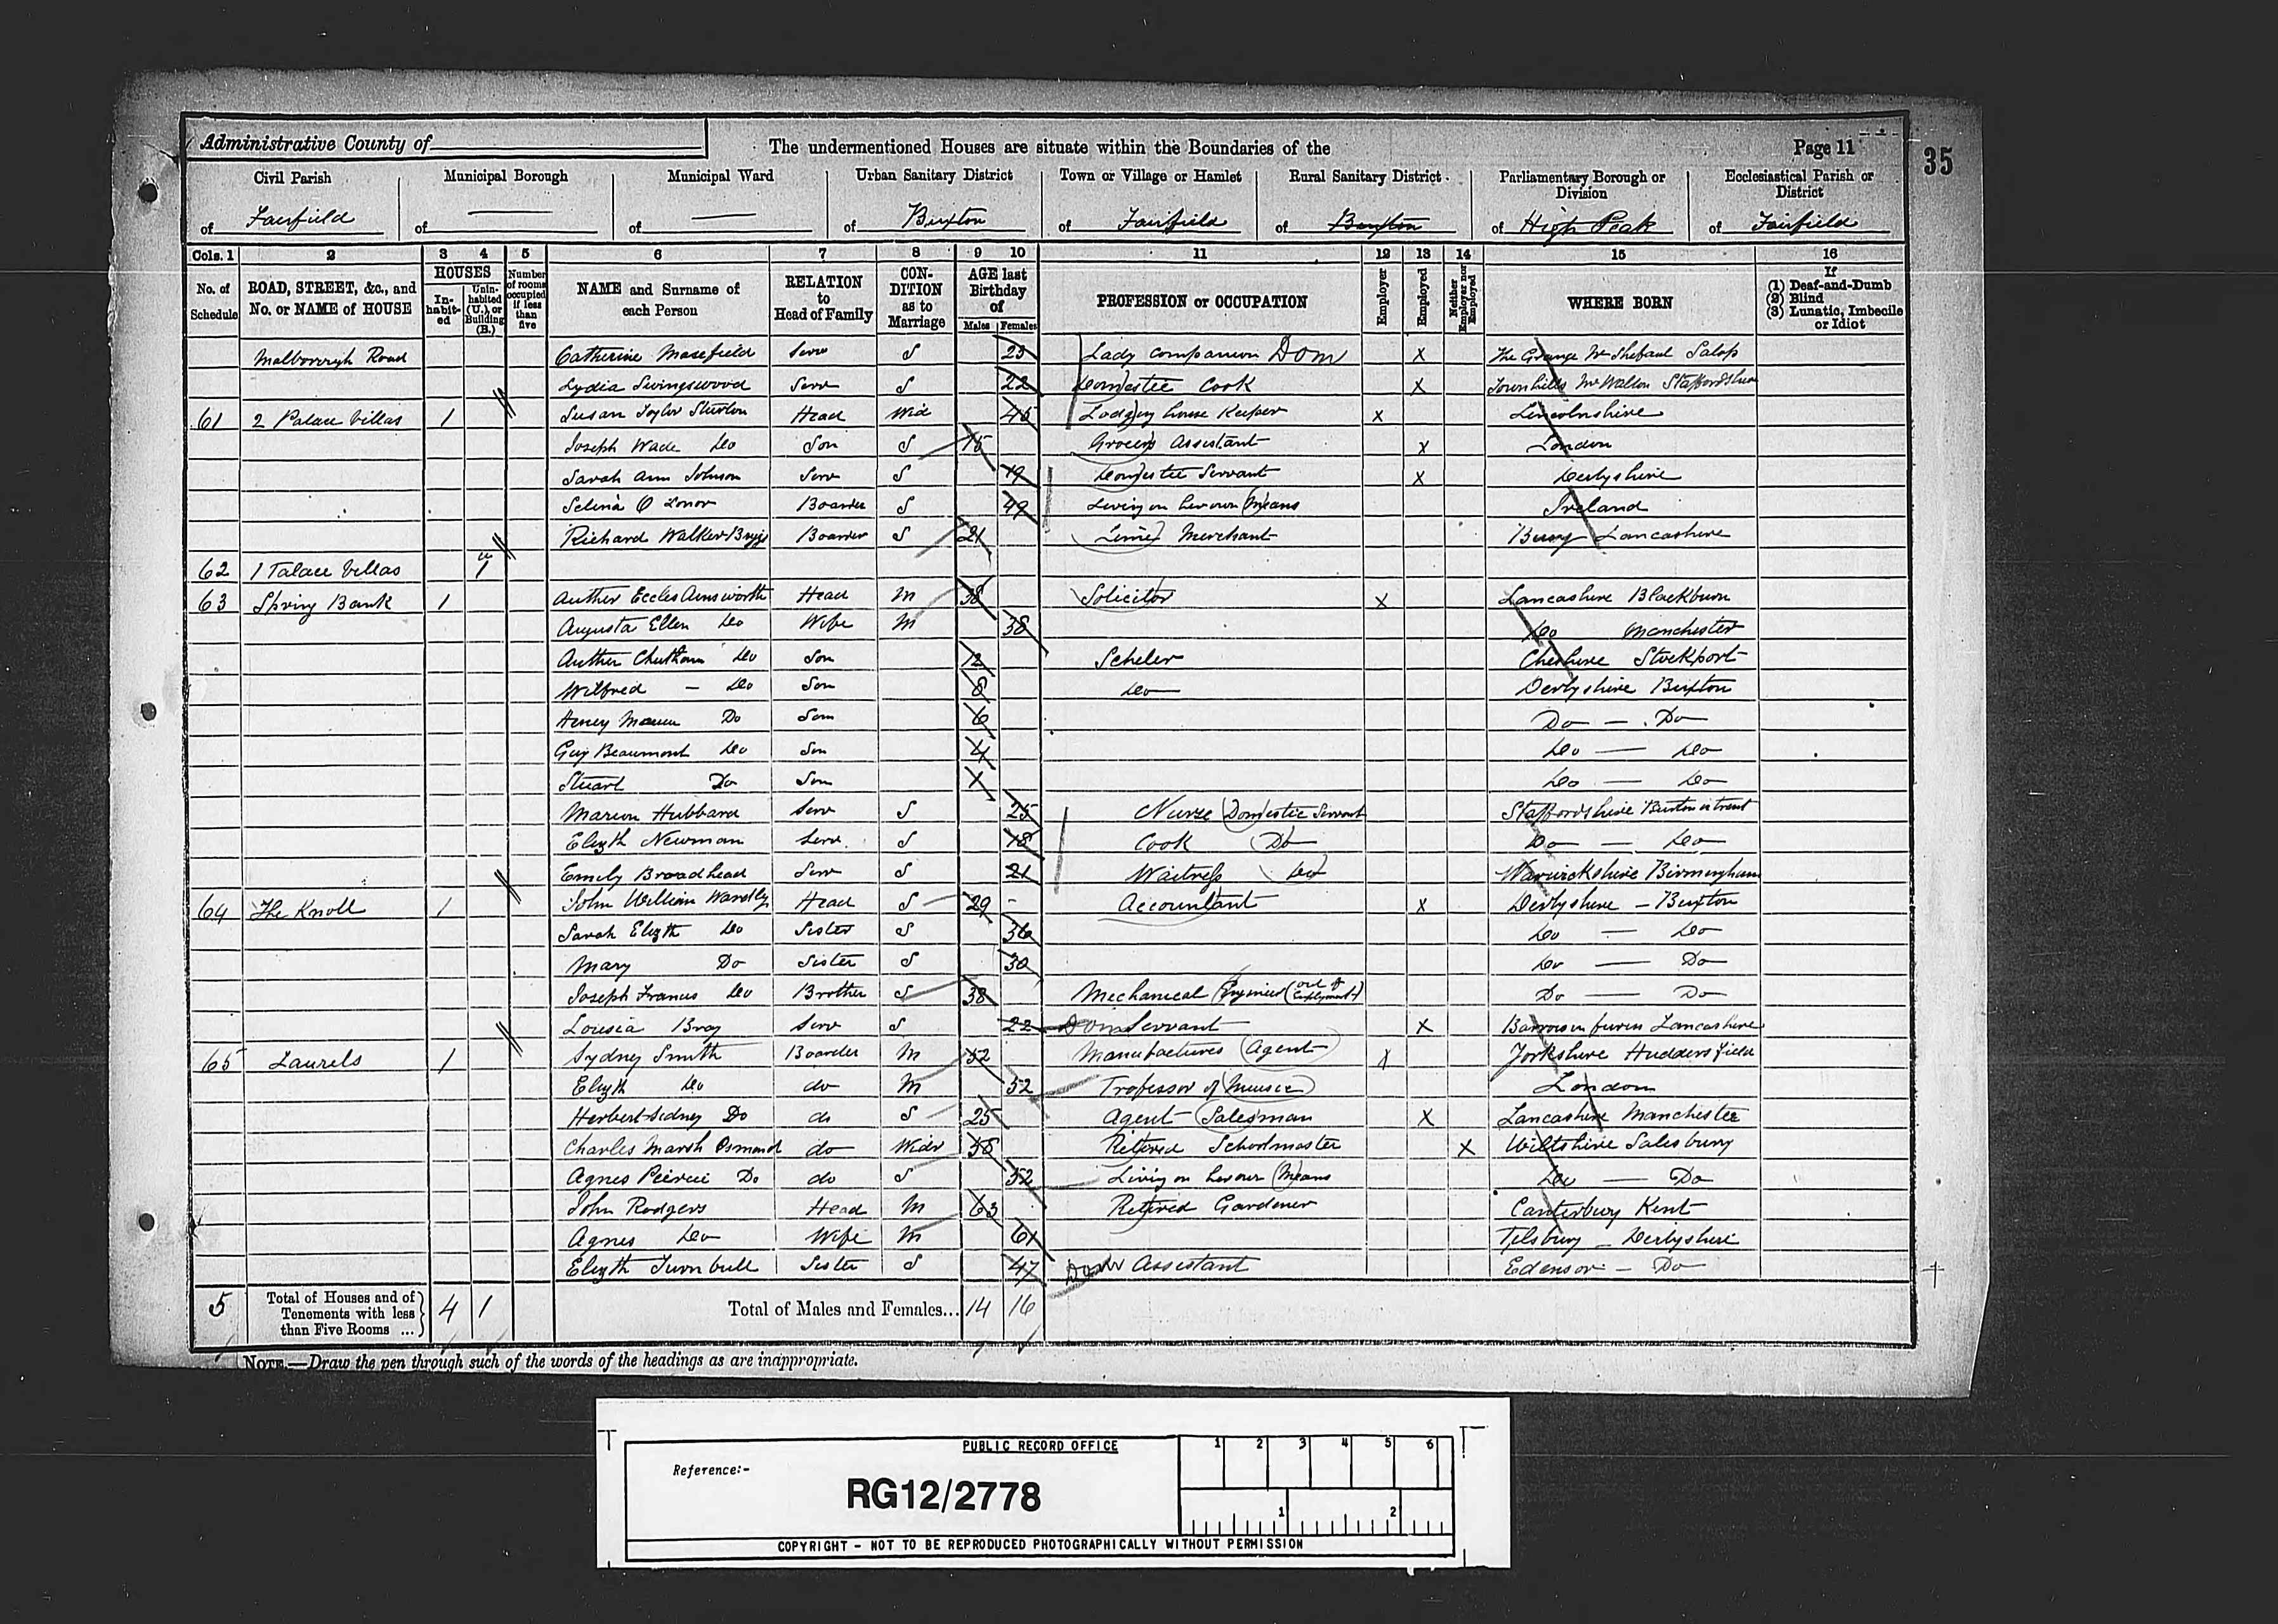 Administrative County of
The undermentioned Houses are situate within the Boundaries of the
Page 11
35
Civil Parish of Fairfield
Municipal Borough of
Municipal Ward of
Urban Sanitary District of Buxton
Town or Village or Hamlet of Fairfield
Rural Sanitary District of Buxton
Parliamentary Borough or Division of High Peak
Ecclesiastical Parish or District of Fairfield
Cols. 1 2 3 4 5 6 7 8 9 10 11 12 13 14 15 16
No. of Schedule
ROAD, STREET, &c., and No. or NAME of HOUSE
HOUSES
In-habit-ed
Unin-habited (U.), or Building (B.)
Number of rooms occupied if less than five
NAME and Surname of each Person
RELATION to Head of Family
CON-DITION as to Marriage
AGE last Birthday of
Males Females
PROFESSION or OCCUPATION
Employer
Employed
Neither Employer nor Employed
WHERE BORN
If (1) Deaf-and-Dumb (2) Blind (3) Lunatic, Imbecile or Idiot
Road Catherine Masefield Serv S 23 Lady companion Dom X The Grange Salop
Lydia Swingswood Serv S 22 Domestic Cook X
61 2 Palace Villas 1 Susan Taylor Head Wid 45 Lodging house Keeper X Lincolnshire
Joseph Wade Do Son S 15 Grocers Assistant X London
Sarah Ann Johnson Serv S 19 Domestic Servant X Derbyshire
Selina O Conor Boarder S 49 Living on her own Means Ireland
Richard Walker Briggs Boarder S 21 Lime Merchant Bury Lancashire
62 1 Palace Villas u 1
63 Spring Bank 1 Auther Eccles Ainsworth Head M 38 Solicitor X Lancashire Blackburn
Augusta Ellen Do Wife M 38 Do Manchester
Auther Do Son 12 Scholer Cheshire Stockport
Wilfred — Do Son 8 Do Derbyshire Buxton
Henry Do Son 6 Do — Do
Guy Beaumont Do Son 4 Do — Do
Stuart Do Son 1 Do — Do
Marion Hubbard Serv S 25 Nurse Domestic Servant Staffordshire Burton
Elizth Newman Serv S 18 Cook Do Do — Do
Emily Broadhead Serv S 21 Waitress Do Warwickshire Birmingham
64 The Knoll 1 John William Head S 29 Accountant X Derbyshire — Buxton
Sarah Elizth Do Sister S 36 Do — Do
Mary Do Sister S 30 Do — Do
Joseph Francis Do Brother S 38 Mechanical Engineer (out of Employment) Do — Do
Lousia Bray Serv S 22 Dom Servant X Barrow in furness Lancashire
65 Laurels 1 Sydney Smith Boarder M 52 Manufacturers Agent X Yorkshire Huddersfield
Elizth Do do M 52 Professor of Music London
Herbert Sidney Do do S 25 Agent Salesman X Lancashire Manchester
Charles Marsh Osmond do Widr 58 Retired Schoolmaster X Wiltshire Salesbury
Agnes Do do S 52 Living on her own Means Do — Do
John Rodgers Head M 63 Retired Gardener Canterbury Kent
Agnes Do Wife M 61 — Derbyshire
Elizth Turnbull Sister S 47 Assistant Edensor — Do
5 Total of Houses and of Tenements with less than Five Rooms ... 4 1 Total of Males and Females... 14 16
NOTE.—Draw the pen through such of the words of the headings as are inappropriate.
PUBLIC RECORD OFFICE
Reference:-
RG12/2778
1 2 3 4 5 6
1 2
COPYRIGHT - NOT TO BE REPRODUCED PHOTOGRAPHICALLY WITHOUT PERMISSION